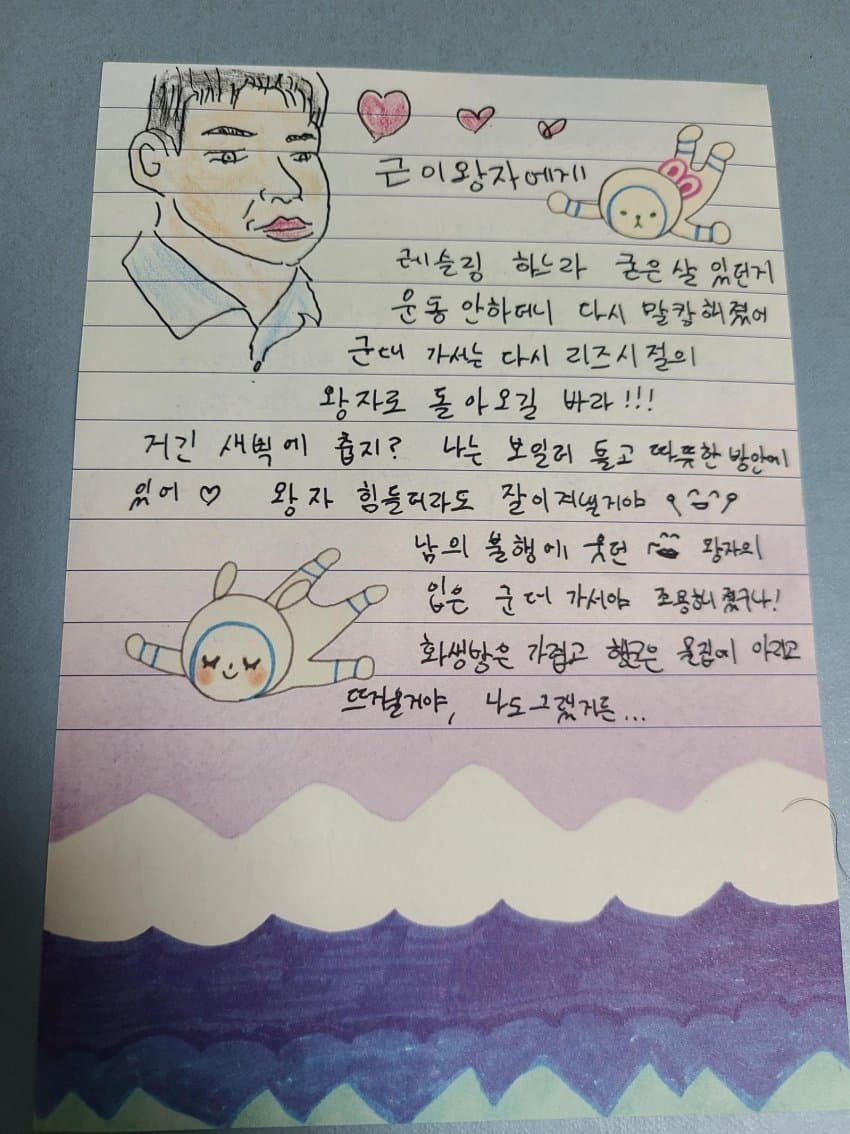 근이왕자에게
레슬링 하느라 굳은살 있던게
운동 안하더니 다시 말캉해졌어
군대 가서는 다시 리즈시절의
왕자로 돌아오길 바라!!!
거긴 새벽에 춥지? 나는 보일러 틀고 따뜻한 방안에
있어 ♡ 왕자 힘들더라도 잘이겨낼거야
남의 불행에 웃던 왕자의
입은 군대 가서야 조용해졌구나!
화생방은 가렵고 행군은 물집에 아리고
뜨거울거야, 나도그랬거든...